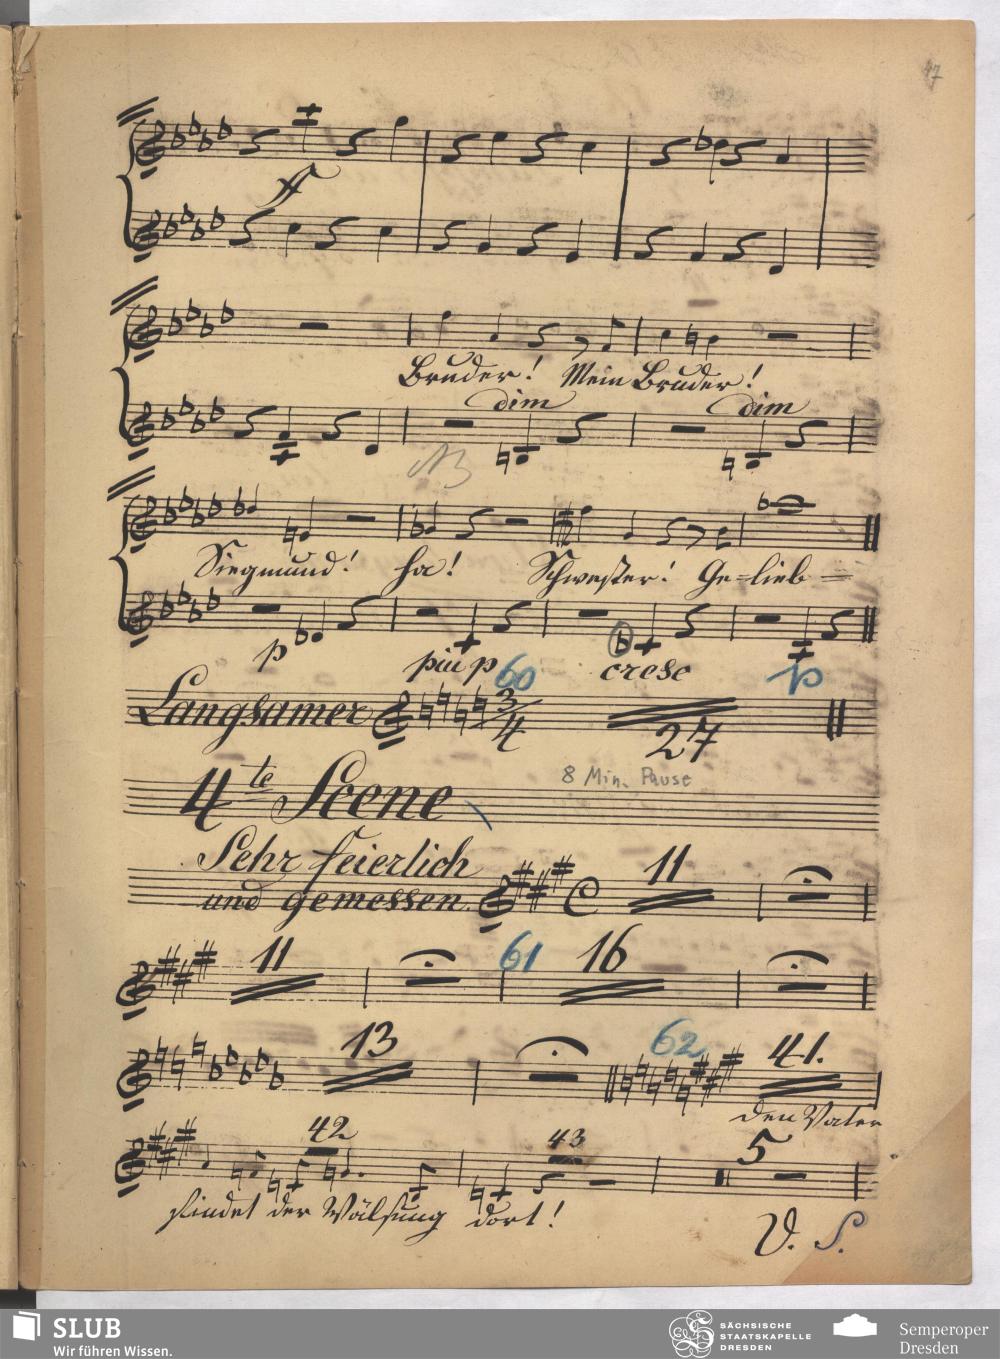 47
ff
Bruder! Mein Bruder!
dim dim
NB
Siegmund! ha! Schwester! Ge-lieb-
p piu p 60 cresc p
Langsamer 3/4 27
4te Scene 8 Min. Pause
Sehr feierlich 11
und gemessen C
11 61 16
13 62 41.
den Vater
42 43 5
findet der Wälsung dort!
V. S.
SLUB
Wir führen Wissen.
SÄCHSISCHE
STAATSKAPELLE
DRESDEN
Semperoper
Dresden